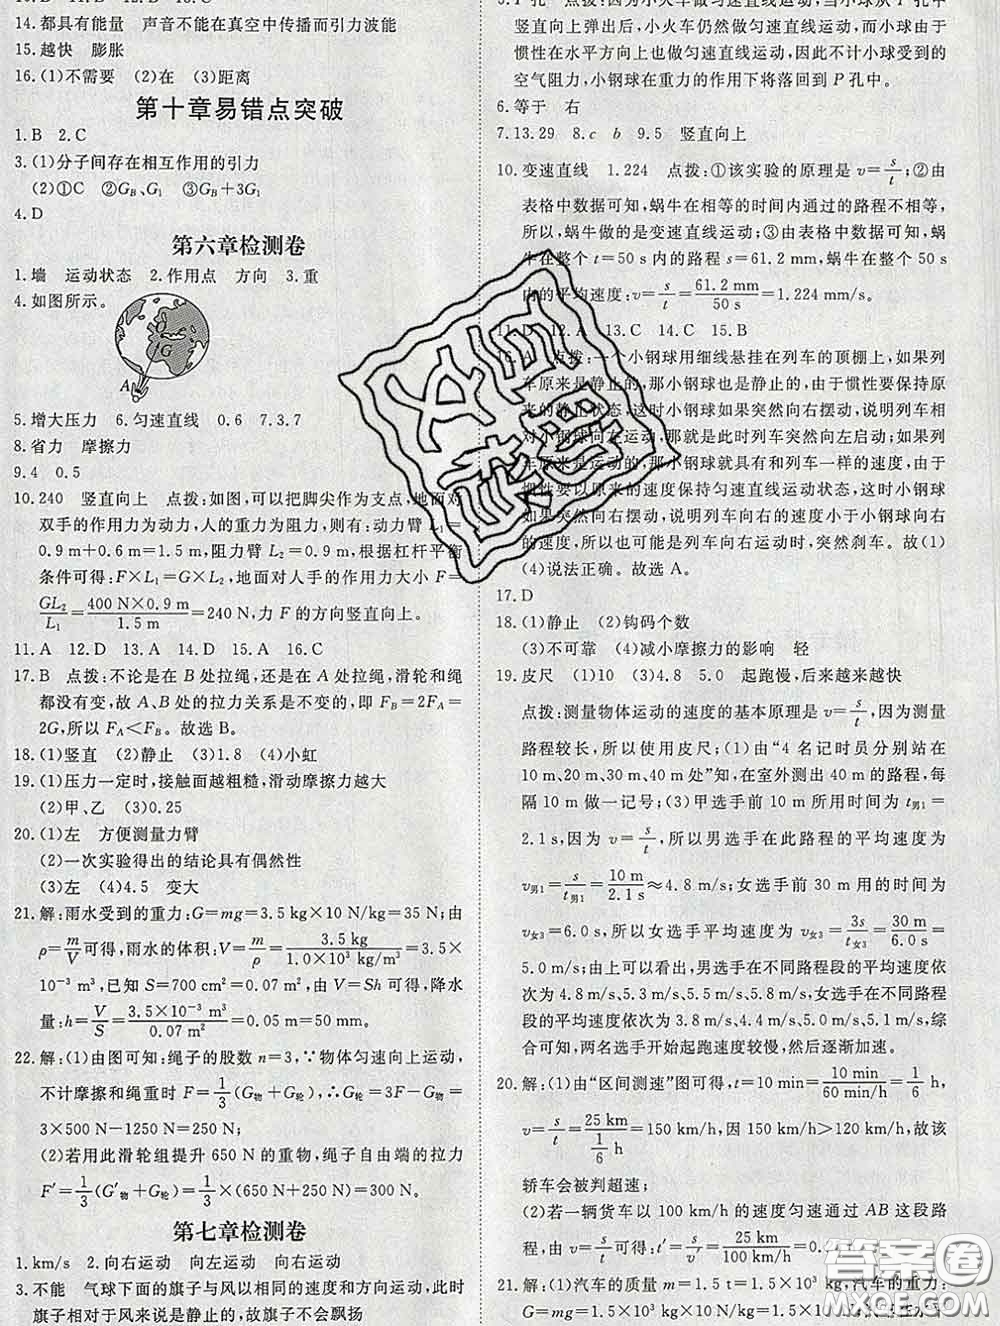 14.都具有能量　声音不能在真空中传播而引力波能
15.越快　膨胀
16.(1)不需要　(2)在　(3)距离
第十章易错点突破
1.B　2.C
3.(1)分子间存在相互作用的引力
(2)①C　②G_B、G_1　③G_B+3G_1
4.D
第六章检测卷
1.墙　运动状态　2.作用点　方向　3.重
4.如图所示。
G
A
5.增大压力　6.匀速直线　7.3.7
8.省力　摩擦力
9.4　0.5
10.240　竖直向上　点拨:如图,可以把脚尖作为支点,地面对
双手的作用力为动力,人的重力为阻力,则有:动力臂 L₁=
0.9 m+0.6 m=1.5 m,阻力臂 L₂=0.9 m,根据杠杆平衡
条件可得:F×L₁=G×L₂,地面对人手的作用力大小 F=
GL₂/L₁=400 N×0.9 m/1.5 m=240 N,力 F 的方向竖直向上。
11.A　12.D　13.A　14.C　15.C　16.A
17.B　点拨:不论是在 B 处拉绳,还是在 A 处拉绳,滑轮和绳
都没有变,故 A、B 处的拉力关系是不变的,即 F_B=2F_A=
2G,所以 F_A<F_B。故选 B。
18.(1)竖直　(2)静止　(3)1.8　(4)小虹
19.(1)压力一定时,接触面越粗糙,滑动摩擦力越大
(2)甲、乙　(3)0.25
20.(1)左　方便测量力臂
(2)一次实验得出的结论具有偶然性
(3)左　(4)4.5　变大
21.解:雨水受到的重力:G=mg=3.5 kg×10 N/kg=35 N;由
ρ=m/V可得,雨水的体积:V=m/ρ=3.5 kg/1.0×10³ kg/m³=3.5×
10⁻³ m³,已知 S=700 cm²=0.07 m²,由 V=Sh 可得,降水
量:h=V/S=3.5×10⁻³ m³/0.07 m²=0.05 m=50 mm。
22.解:(1)由图可知:绳子的股数 n=3,∵物体匀速向上运动,
不计摩擦和绳重时 F=1/3(G物+G轮),∴G轮=3F-G物=
3×500 N-1250 N=250 N;
(2)若用此滑轮组提升 650 N 的重物,绳子自由端的拉力
F′=1/3(G′物+G轮)=1/3×(650 N+250 N)=300 N。
第七章检测卷
1.km/s　2.向右运动　向左运动　向右运动
3.不能　气球下面的旗子与风以相同的速度和方向运动,此时
旗子相对于风来说是静止的,故旗子不会飘扬
竖直向上弹出后,小火车仍然做匀速直线运动,而小球由于
惯性在水平方向上也做匀速直线运动,因此不计小球受到的
空气阻力,小钢球在重力的作用下将落回到 P 孔中。
6.等于　右
7.13.29　8.c　b　9.5　竖直向上
10.变速直线　1.224　点拨:①该实验的原理是 v=s/t;②由
表格中数据可知,蜗牛在相等的时间内通过的路程不相等,
所以,蜗牛做的是变速直线运动;③由表格中数据可知,蜗
牛在整个 t=50 s 内的路程 s=61.2 mm,蜗牛在整个过程
内的平均速度:v=s/t=61.2 mm/50 s=1.224 mm/s。
11.D　12.A　13.C　14.C　15.B
16.A　点拨:一个小钢球用细线悬挂在列车的顶棚上,如果列
车原来是静止的,那小钢球也是静止的,由于惯性要保持原
来的静止状态,这时小钢球如果突然向右摆动,说明列车相
对小钢球向左运动,那就是此时列车突然向左启动;如果列
车原来是向右运动的,那小钢球就具有和列车一样的速度,由于
惯性要以原来的速度保持匀速直线运动状态,这时小钢球
如果突然向右摆动,说明列车向右的速度小于小钢球向右
的速度,所以也可能是列车向右运动时,突然刹车。故(1)
(4)说法正确。故选 A。
17.D
18.(1)静止　(2)钩码个数
(3)不可靠　(4)减小摩擦力的影响　轻
19.皮尺　(1)10　(3)4.8　5.0　起跑慢,后来越来越快
点拨:测量物体运动的速度的基本原理是 v=s/t,因为测量
路程较长,所以要使用皮尺;(1)由“4 名记时员分别站在
10 m、20 m、30 m、40 m 处”知,在室外测出 40 m 的路程,
每隔 10 m 做一记号;(3)甲选手前 10 m 所用时间为 t男1=
2.1 s,因为 v=s/t,所以男选手在此路程的平均速度为
v男1=s/t男1=10 m/2.1 s≈4.8 m/s;女选手前 30 m 用的时间为
v女3=6.0 s,所以女选手平均速度为 v女3=3s/t女3=30 m/6.0 s=
5.0 m/s;由上可以看出,男选手在不同路程段的平均速度依
次为 4.8 m/s、5.3 m/s、5.5 m/s、5.8 m/s,女选手在不同路程
段的平均速度依次为 3.8 m/s、4.4 m/s、5.0 m/s、5.1 m/s,综
合可知,两名选手开始起跑速度较慢,然后逐渐加速。
20.解:(1)由“区间测速”图可得,t=10 min=10 min/60 min/h=1/6 h,
v=s/t=25 km/(1/6 h)=150 km/h,因 150 km/h>120 km/h,故该
轿车会被判超速;
(2)若一辆货车以 100 km/h 的速度匀速通过 AB 这段路
程,由 v=s/t可得,t′=s/v′=25 km/100 km/h=0.25 h。
21.解:(1)汽车的质量 m=1.5 t=1.5×10³ kg,汽车的重力:
G=mg=1.5×10³ kg×10 N/kg=1.5×10⁴ N
答案圈
MXQE.COM